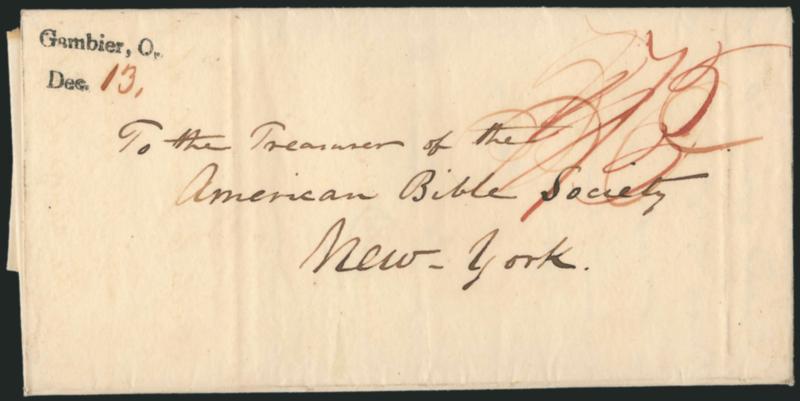 Gambier, O.
Dec. 13,
To the Treasurer of the
American Bible Society
New-York.